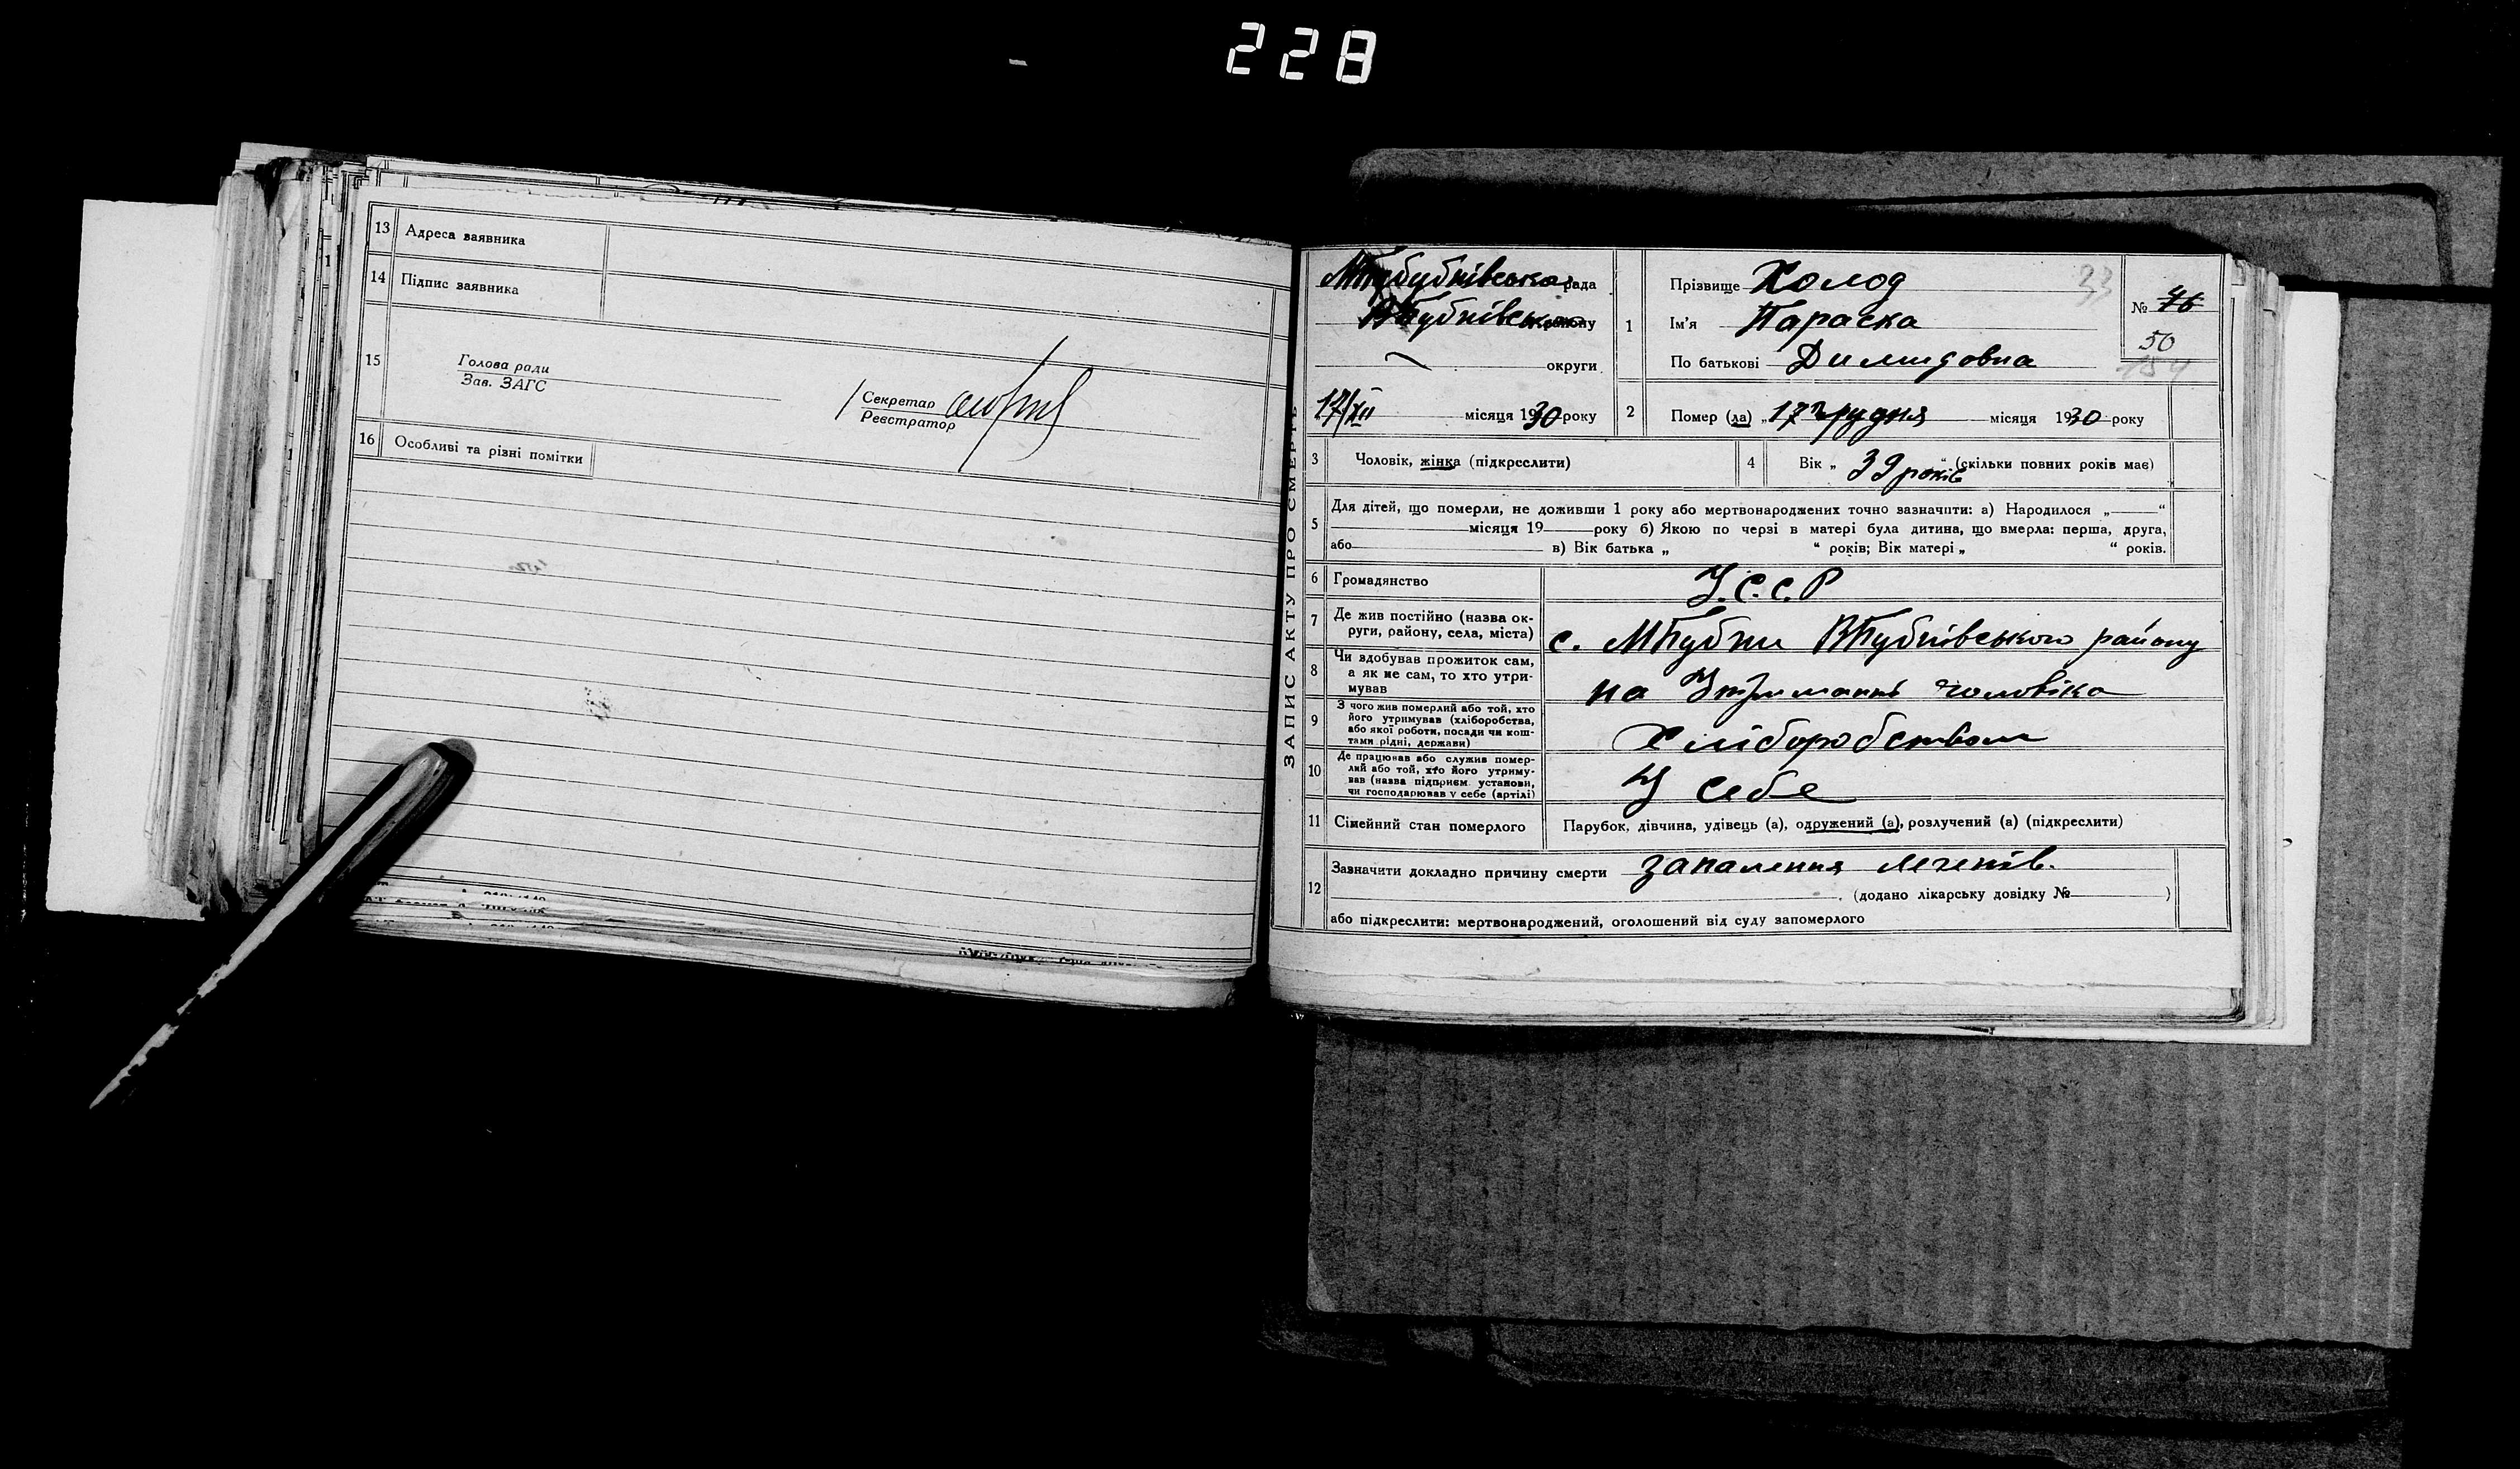 228
13 Адреса заявника
14 Підпис заявника
15 Голова ради
Зав. ЗАГС
Секретар
Реєстратор
16 Особливі та різні помітки
ЗАПИС АКТУ ПРО СМЕРТЬ
МБубнівська рада
ВБубнівського району
округи
17/XII місяця 1930 року
1 Прізвище Холод
Ім'я Параска
По батькові Демидовна
33
№ 46
50
154
2 Помер (ла) „17" грудня місяця 1930 року
3 Чоловік, жінка (підкреслити)
4 Вік „39 років" (скільки повних років має)
5 Для дітей, що померли, не доживши 1 року або мертвонароджених точно зазначити: а) Народилося „ “
місяця 19 року б) Якою по черзі в матері була дитина, що вмерла: перша, друга,
або в) Вік батька „ “ років; Вік матері „ “ років.
6 Громадянство У.С.С.Р
7 Де жив постійно (назва ок-
руги, району, села, міста) с. МБубни ВБубнівського району
8 Чи здобував прожиток сам,
а як не сам, то хто утри-
мував на Утриманні чоловіка
9 З чого жив померлий або той, хто
його утримував (хліборобства,
або якої роботи, посади чи кош-
тами рідні, держави) Хліборобством
10 Де працював або служив помер-
лий або той, хто його утриму-
вав (назва підприєм. установи,
чи господарював у себе (артілі) У себе
11 Сімейний стан померлого Парубок, дівчина, удівець (а), одружений (а), розлучений (а) (підкреслити)
12 Зазначити докладно причину смерти запалення легенів.
(додано лікарську довідку № )
або підкреслити: мертвонароджений, оголошений від суду запомерлого